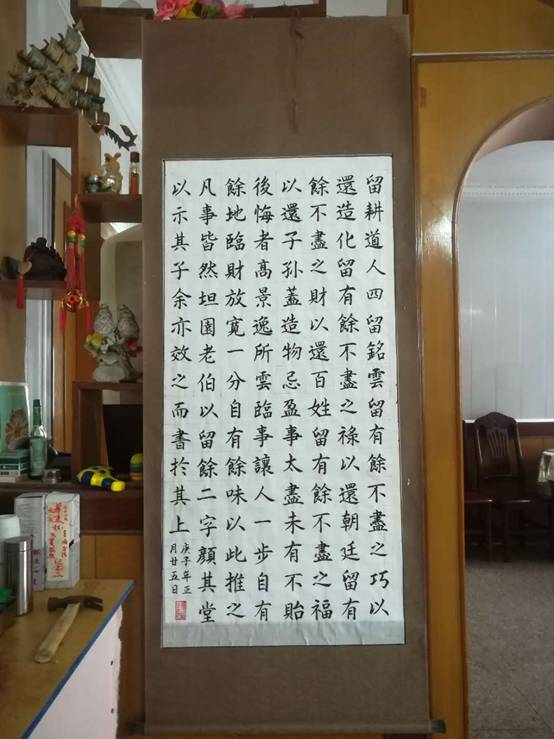 留耕道人四留銘雲留有餘不盡之巧以
還造化留有餘不盡之祿以還朝廷留有
餘不盡之財以還百姓留有餘不盡之福
以還子孙蓋造物忌盈事太盡未有不貽
後悔者高景逸所雲臨事讓人一步自有
餘地臨財放寬一分自有餘味以此推之
凡事皆然坦園老伯以留餘二字顏其堂
以示其子余亦效之而書於其上
庚子年正
月廿五日